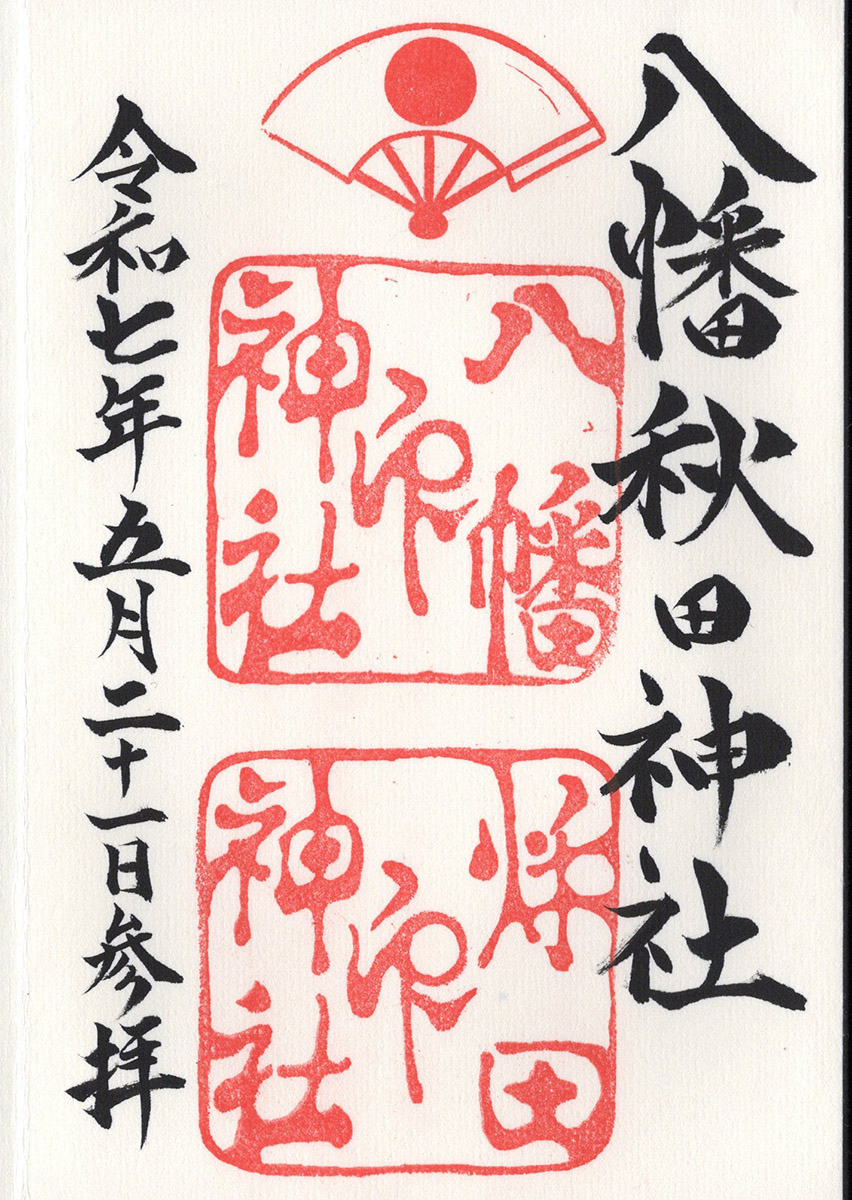 八幡秋田神社
八幡
印
神社
秌田
印
神社
令和七年五月二十一日参拝